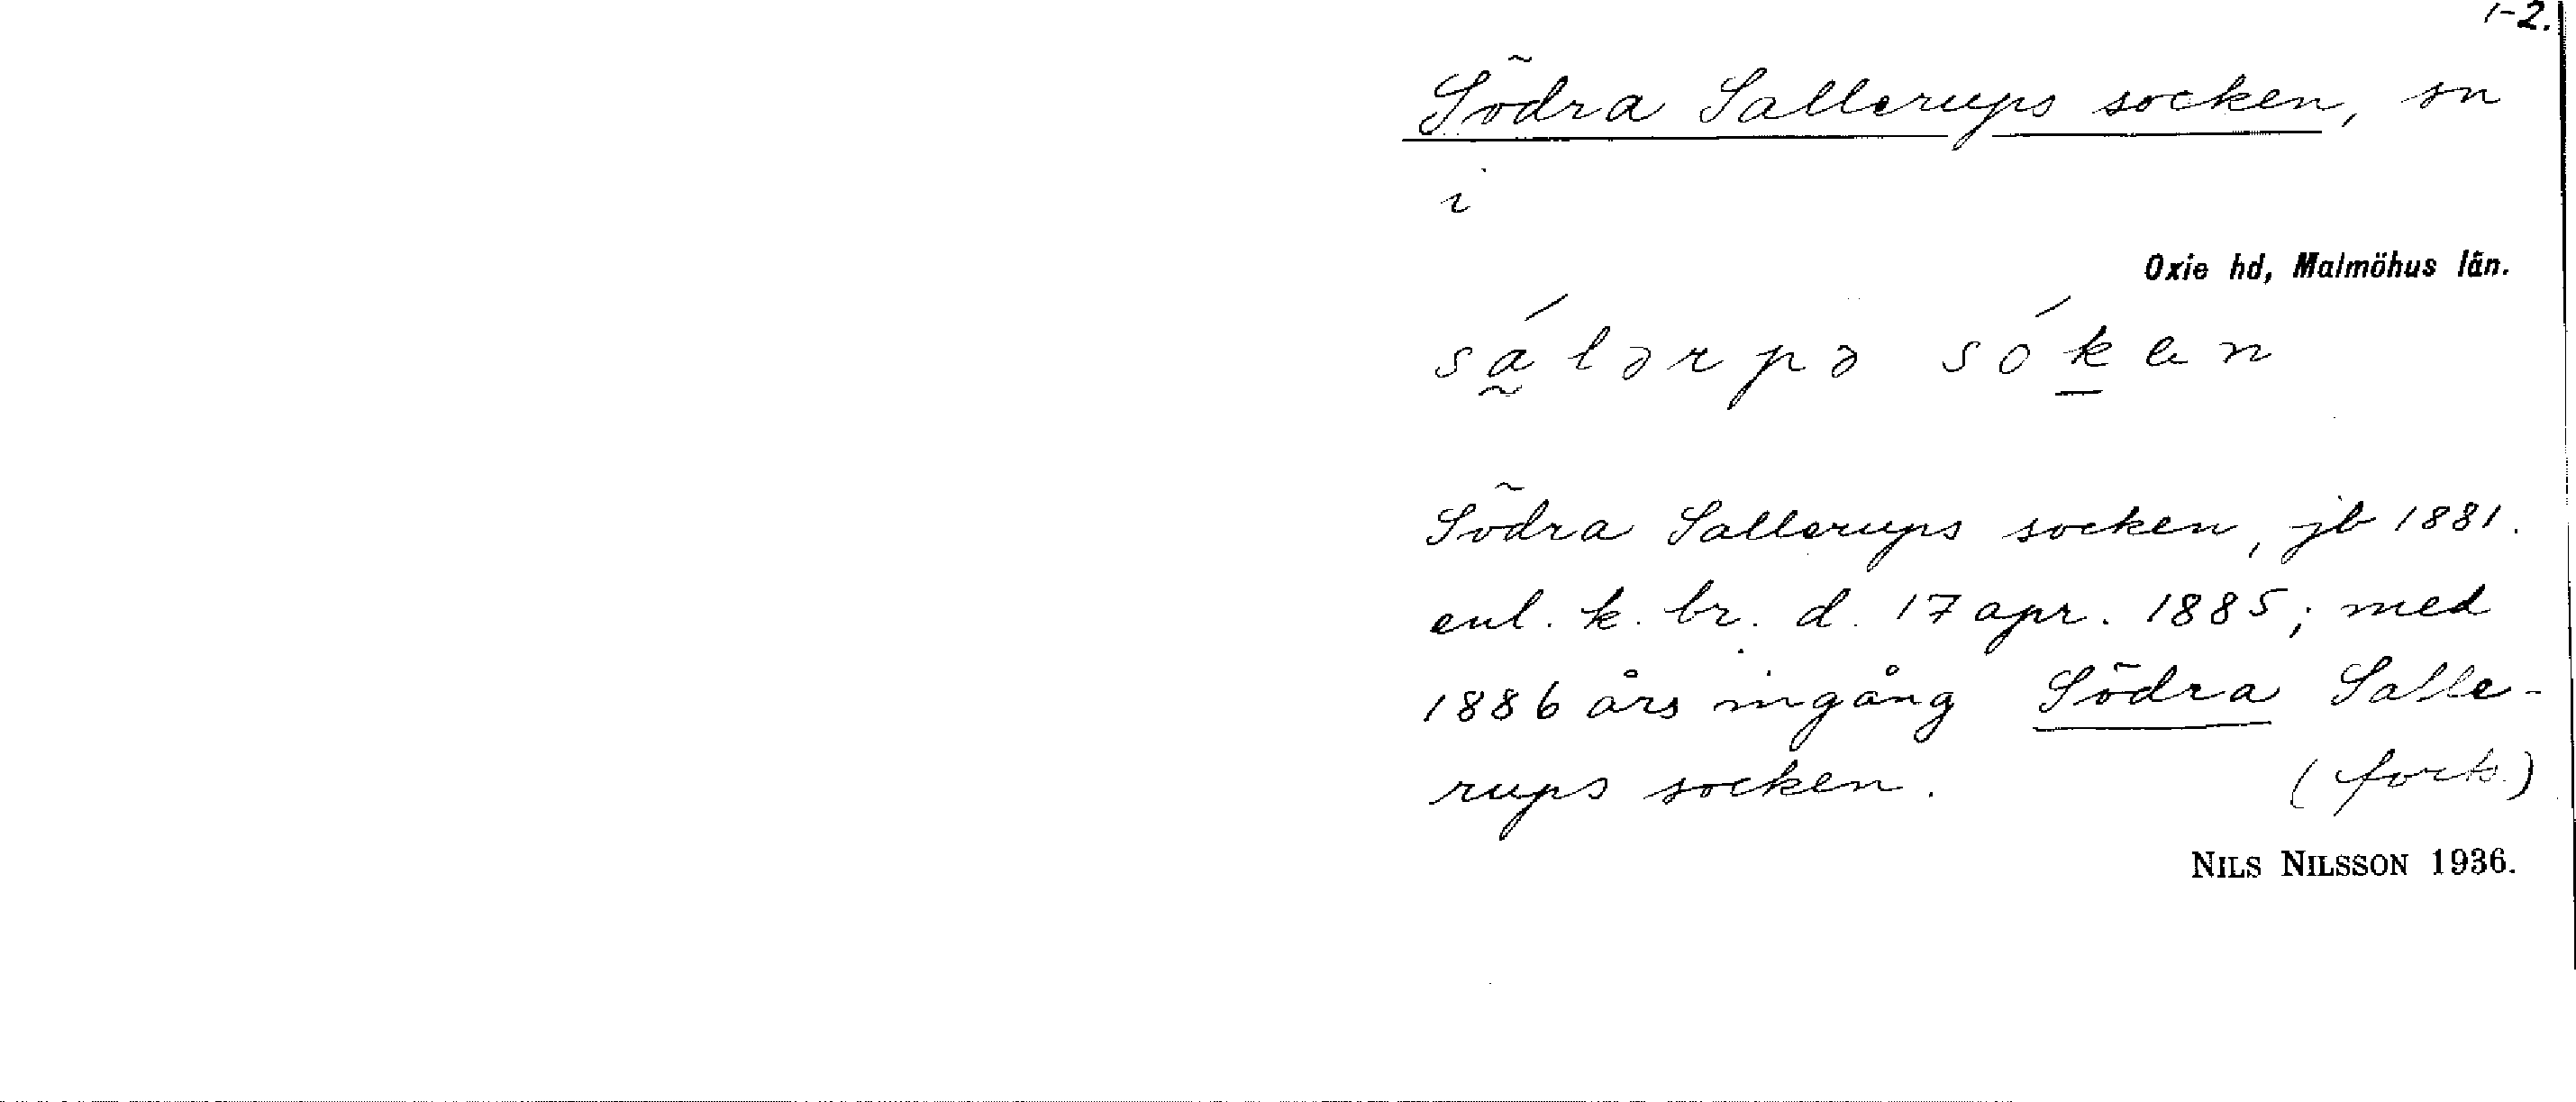 1-2.
Södra Sallerups socken, sn
i
Oxie hd, Malmöhus län.
sálərpə sóken
Södra Sallerups socken, jb 1881.
enl. k. br. d. 17 apr. 1885; med
1886 års ingång Södra Salle-
rups socken. (forts.)
NILS NILSSON 1936.